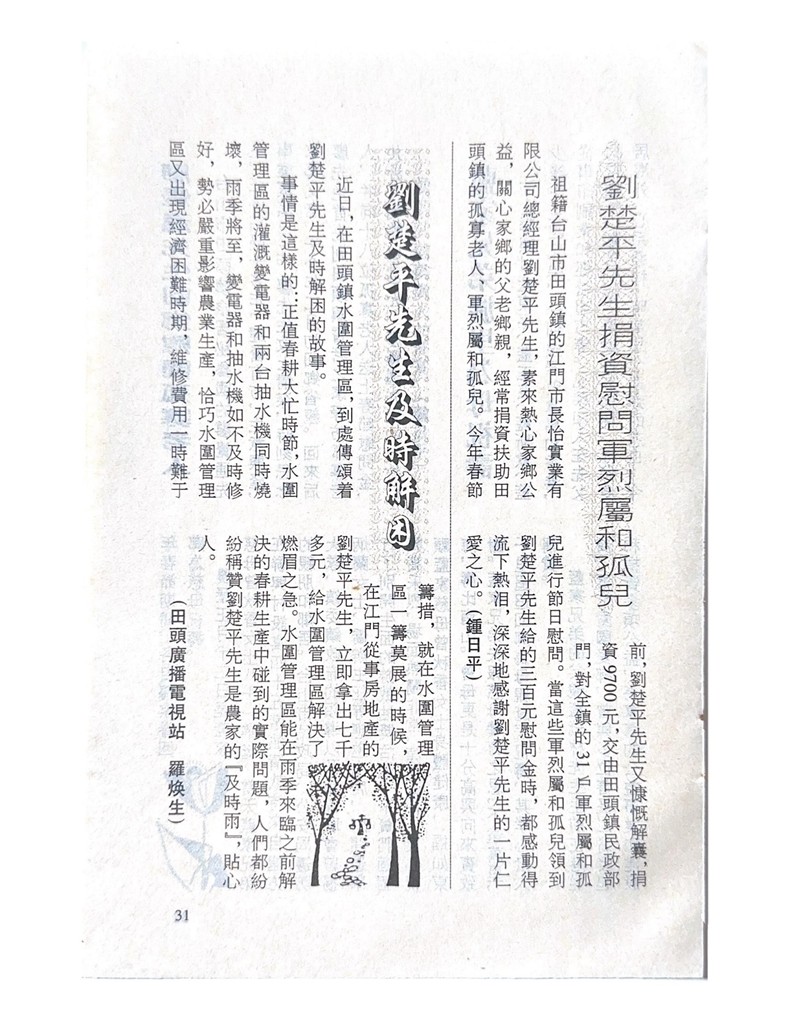 劉楚平先生捐資慰問軍烈屬和孤兒
祖籍台山市田頭鎮的江門市長怡實業有
限公司總經理劉楚平先生，素來熱心家鄉公
益，關心家鄉的父老鄉親，經常捐資扶助田
頭鎮的孤寡老人、軍烈屬和孤兒。今年春節
前，劉楚平先生又慷慨解囊，捐
資9700元，交由田頭鎮民政部
門，對全鎮的31戶軍烈屬和孤
兒進行節日慰問。當這些軍烈屬和孤兒領到
劉楚平先生給的三百元慰問金時，都感動得
流下熱泪，深深地感謝劉楚平先生的一片仁
愛之心。（鍾日平）
劉楚平先生及時解困
近日，在田頭鎮水圍管理區，到處傳頌着
劉楚平先生及時解困的故事。
事情是這樣的：正值春耕大忙時節，水圍
管理區的灌溉變電器和兩台抽水機同時燒
壞，雨季將至，變電器和抽水機如不及時修
好，勢必嚴重影響農業生產，恰巧水圍管理
區又出現經濟困難時期，維修費用一時難于
籌措，就在水圍管理
區一籌莫展的時候，
在江門從事房地產的
劉楚平先生，立即拿出七千
多元，給水圍管理區解決了
燃眉之急。水圍管理區能在雨季來臨之前解
決的春耕生產中碰到的實際問題，人們都紛
紛稱贊劉楚平先生是農家的『及時雨』，貼心
人。
（田頭廣播電視站　羅煥生）
31